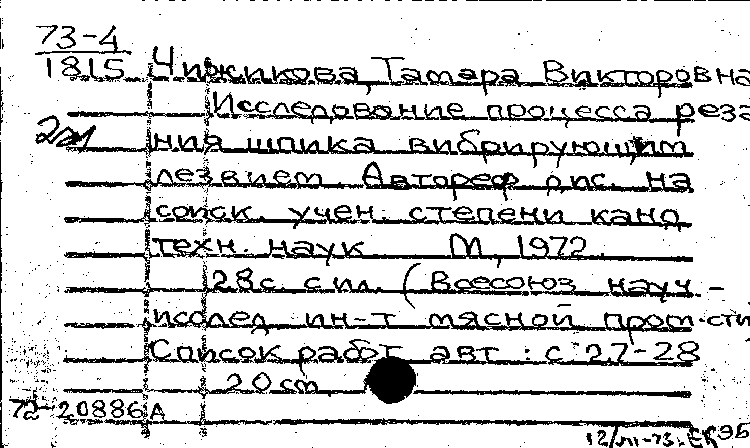 73-4
1815
Чижикова, Тамара Викторовна
Исследование процесса реза-
ния шпика вибрирующим
лезвием. Автореф дис. на
соиск. учен. степени канд.
техн. наук М, 1972.
28с. с ил. (Всесоюз науч-
исслед ин-т мясной пром-сти
Список работ авт : с 27-28
20 см
72-20886А
12/VII-73.